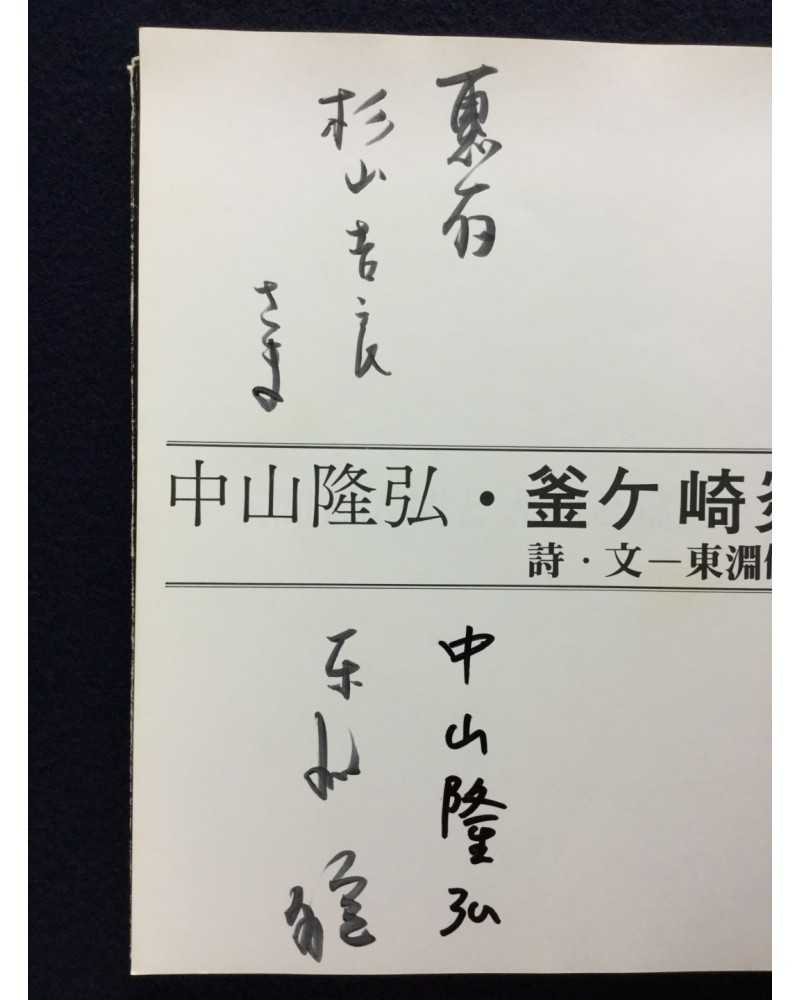 恵存
杉山吉良
さま
中山隆弘・釜ケ崎
詩・文—東淵
中山隆弘
東淵